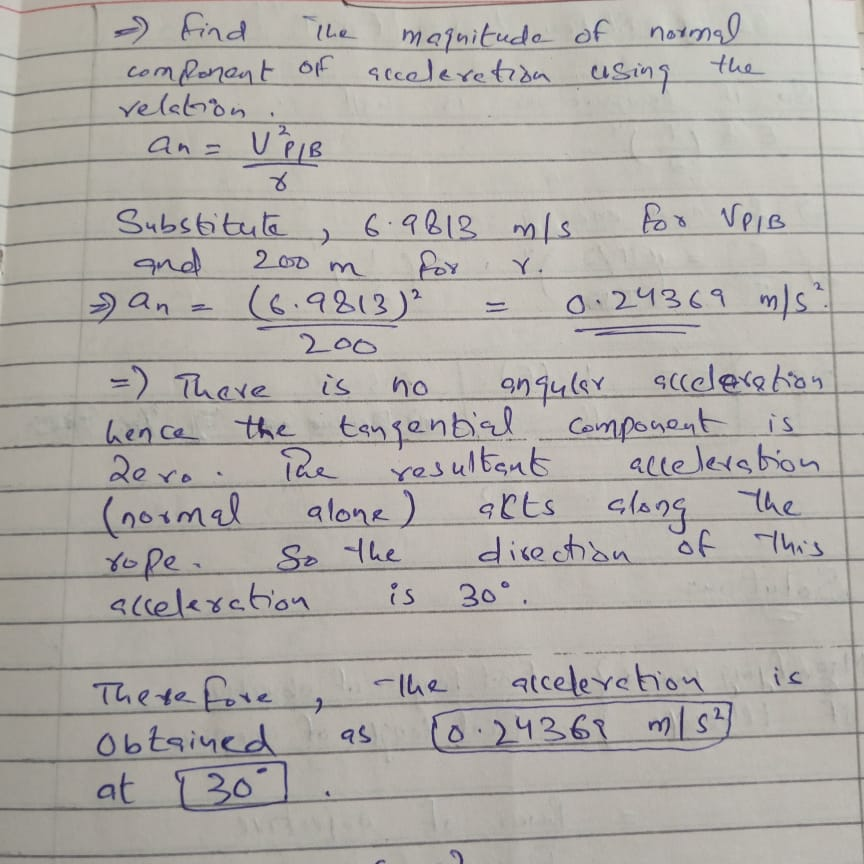 ⇒ Find the magnitude of normal
component of acceleration using the
relation.
an = V²P/B
r
Substitute, 6.9813 m/s for VP/B
and 200 m for r.
⇒ an = (6.9813)² = 0.24369 m/s².
200
⇒ There is no angular acceleration
hence the tangential component is
Zero. The resultant acceleration
(normal alone) acts along the
rope. So the direction of this
acceleration is 30°.
Therefore, the acceleration is
obtained as 0.24369 m/s²
at 30°.